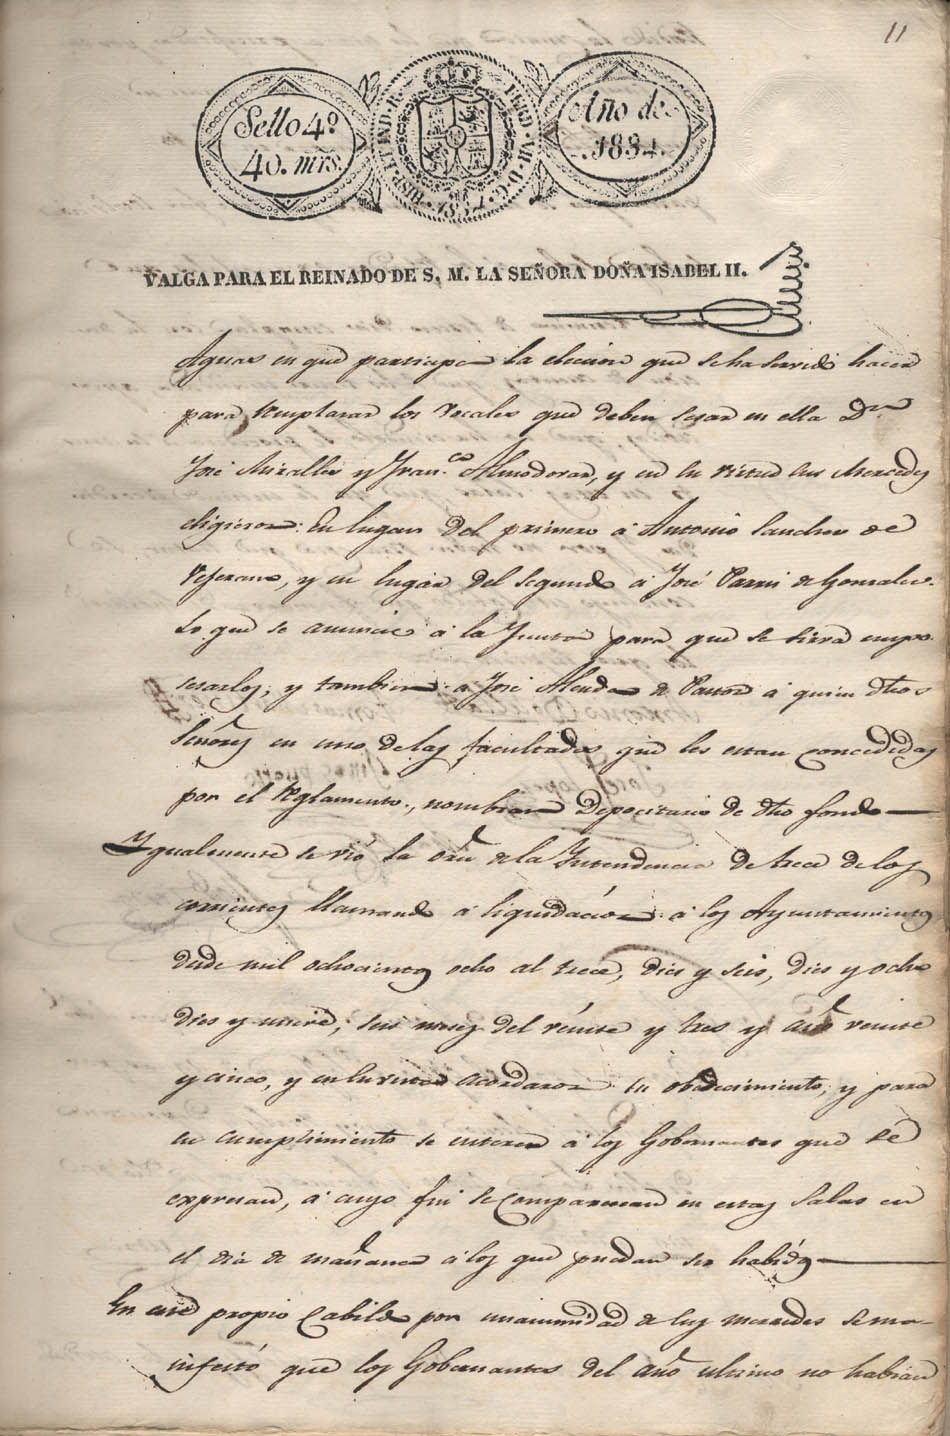 11
Sello 4º
40. mrs.
HISP. ET IND. R. FERD. VII. D. G.
Año de
1834.
VALGA PARA EL REINADO DE S. M. LA SEÑORA DOÑA ISABEL II.
Aguas en que participa la eleccion que se ha servido hacer
para remplazar los vocales que deben sesar en ella Dn
José Miralles y Fran.co Almodovar, y en su virtud sus Mercedes
eligieron: En lugar del primero á Antonio Sanches de
Vejerano, y en lugar del segundo á José Parris de Gonsales.
Lo que se anuncie á la Junta para que se sirva empo
sesarlos, y tambien á José Alenda de Pastor á quien dhos
Señores en uso de las facultades que les estan concedidas
por el Reglamento, nombran Depocitario de dho fondo
Ygualmente se vió la orn de la Yntendencia de trece de los
corrientes llamando á liquidación á los Ayuntamientos
desde mil ochocientos ocho al trece, dies y seis, dies y ocho
dies y nueve, seis meses del veinte y tres y año veinte
y cinco, y en su virtud acordaron su obedecimiento, y para
su cumplimiento se enteren á los Gobernantes que se
expresan, á cuyo fin se comparescan en estas Salas en
el dia de mañana á los que puedan ser habidos
En este propio Cabildo por unanimidad de sus mercedes se ma-
nifestó que los Gobernantes del año ultimo no habian